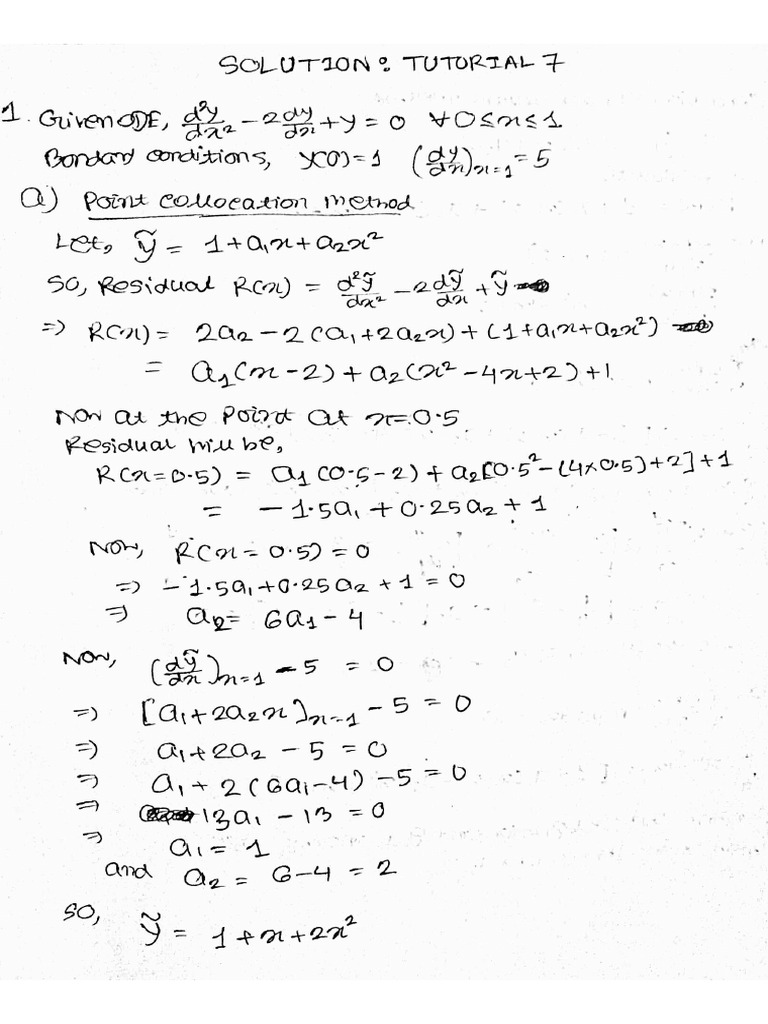 SOLUTION: TUTORIAL 7
1. Given ODE, d²y/dx² - 2dy/dx + y = 0 ∀ 0 ≤ x ≤ 1
Bondard conditions, y(0) = 1 (dy/dx)x=1 = 5
a) Point collocation method
Let, ỹ = 1 + a₁x + a₂x²
SO, Residual R(x) = d²ỹ/dx² - 2dỹ/dx + ỹ
⇒ R(x) = 2a₂ - 2(a₁ + 2a₂x) + (1 + a₁x + a₂x²)
= a₁(x - 2) + a₂(x² - 4x + 2) + 1
Now at the Point at x = 0.5
Residual will be,
R(x = 0.5) = a₁(0.5 - 2) + a₂[0.5² - (4×0.5) + 2] + 1
= -1.5a₁ + 0.25a₂ + 1
Now, R(x = 0.5) = 0
⇒ -1.5a₁ + 0.25a₂ + 1 = 0
⇒ a₂ = 6a₁ - 4
Now, (dỹ/dx)x=1 - 5 = 0
⇒ [a₁ + 2a₂x]x=1 - 5 = 0
⇒ a₁ + 2a₂ - 5 = 0
⇒ a₁ + 2(6a₁ - 4) - 5 = 0
⇒ 13a₁ - 13 = 0
⇒ a₁ = 1
and a₂ = 6 - 4 = 2
SO, ỹ = 1 + x + 2x²